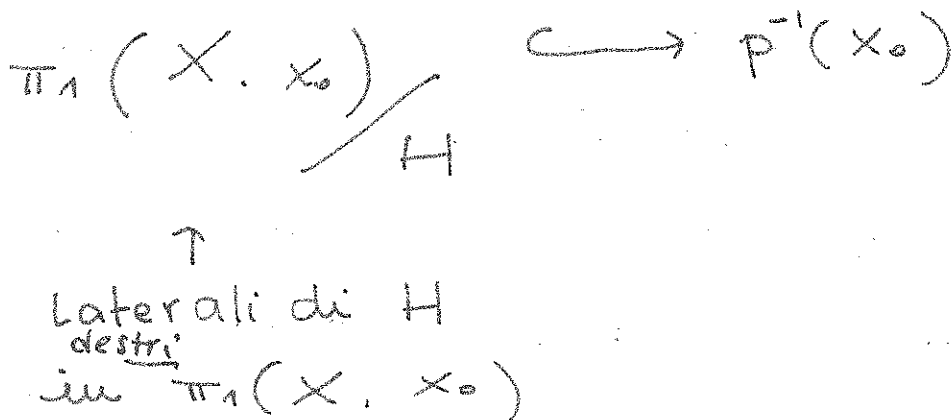 π₁(X, x₀)/H ↪ p⁻¹(x₀)
↑
Laterali di H
destri
in π₁(X, x₀)